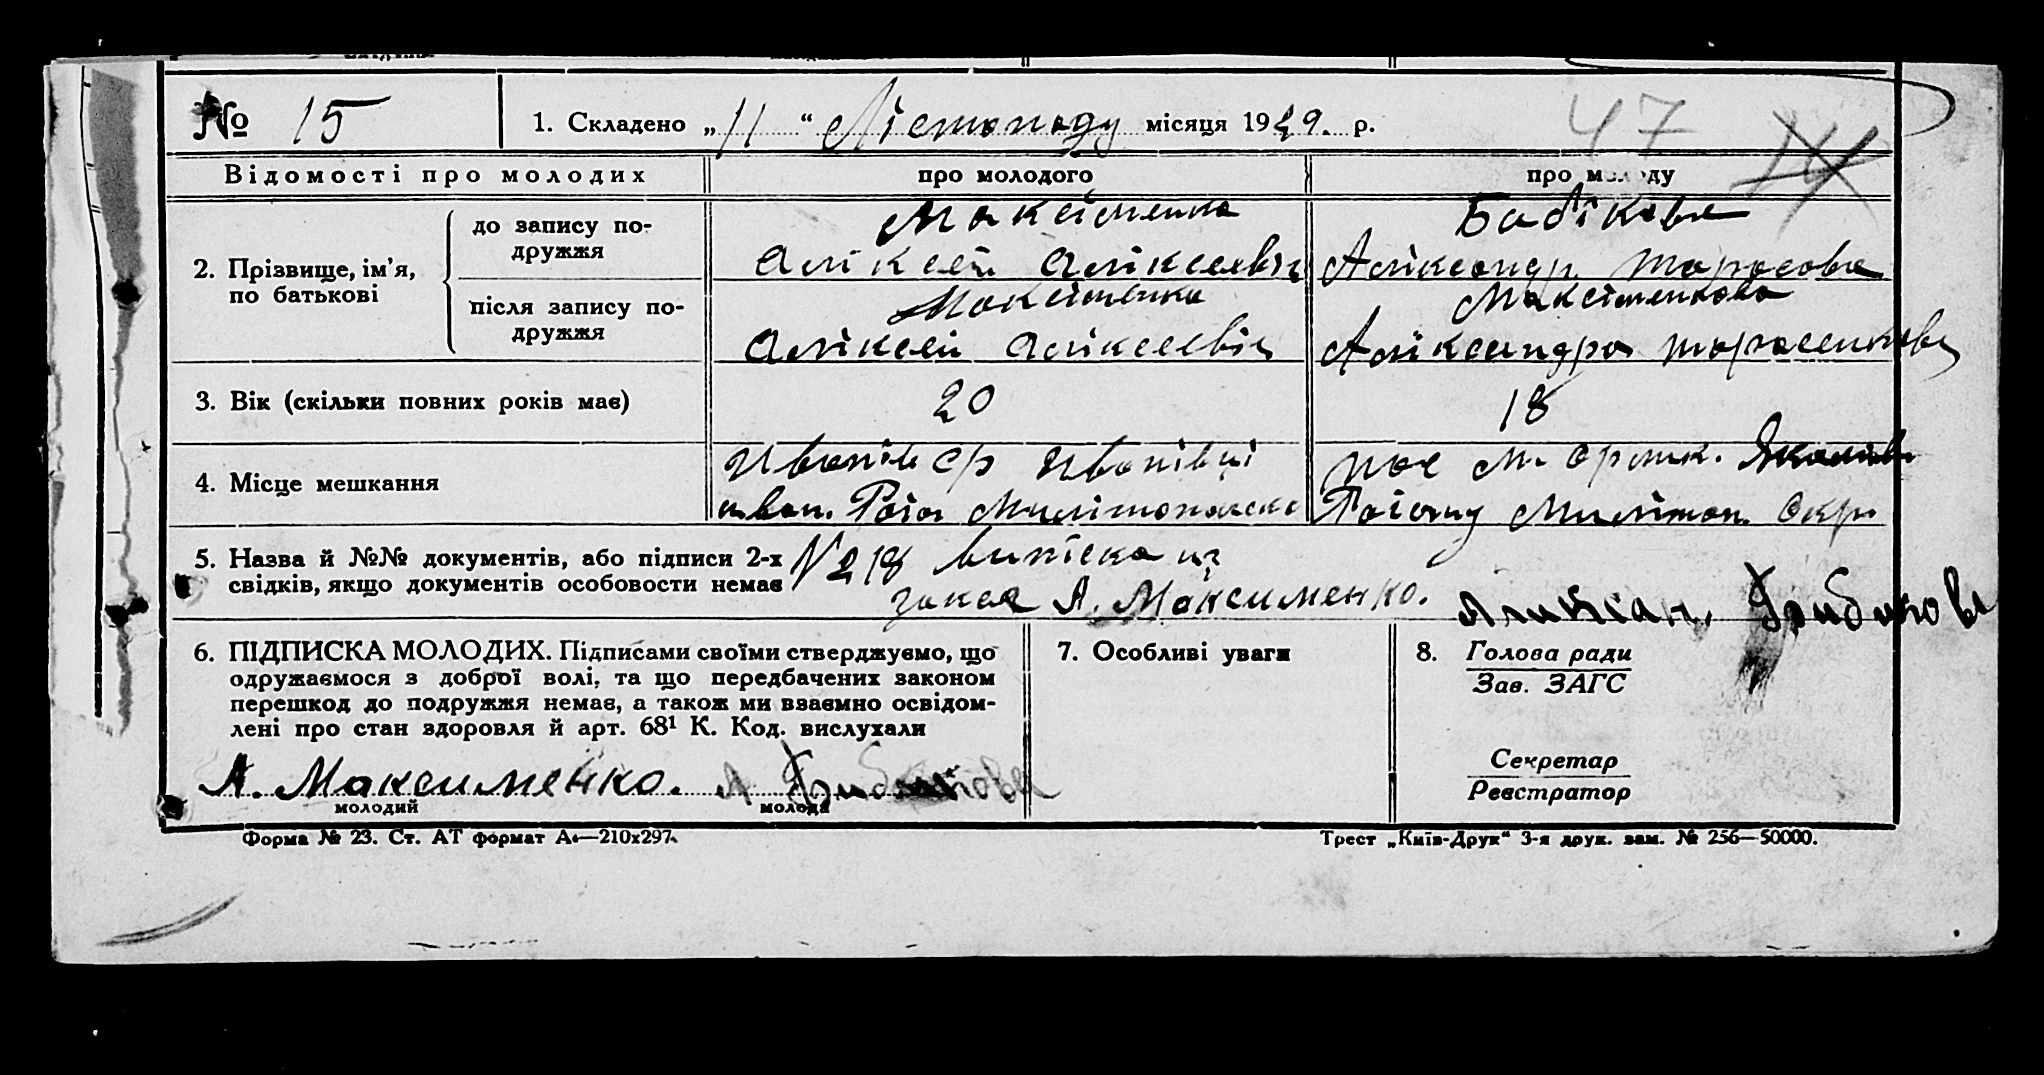 № 15
1. Складено „ 11 “ Лістопаду місяця 1929. р.
47
Відомості про молодих
про молодого
про молоду
2. Прізвище, ім’я, по батькові
до запису по-
дружжя
Максіменко
Аліксей Аліксеевіч
Бабікова
Аліксандр. Тарасова
після запису по-
дружжя
Максіменко
Аліксей Аліксеевіч
Максіменкова
Аліксандра
3. Вік (скільки повних років має)
20
18
4. Місце мешкання
5. Назва й №№ документів, або підписи 2-х
свідків, якщо документів особовости немає
№ 218 випіска из
А. Максименко.
6. ПІДПИСКА МОЛОДИХ. Підписами своїми стверджуємо, що
одружаємося з доброї волі, та що передбачених законом
перешкод до подружжя немає, а також ми взаємно освідом-
лені про стан здоровля й арт. 68¹ К. Код. вислухали
А. Максименко.
молодий
молода
7. Особливі уваги
8. Голова ради
Зав. ЗАГС
Секретар
Реєстратор
Форма № 23. Ст. АТ формат А4—210х297.
Трест „Київ-Друк“ 3-я друк. зам. № 256—50000.